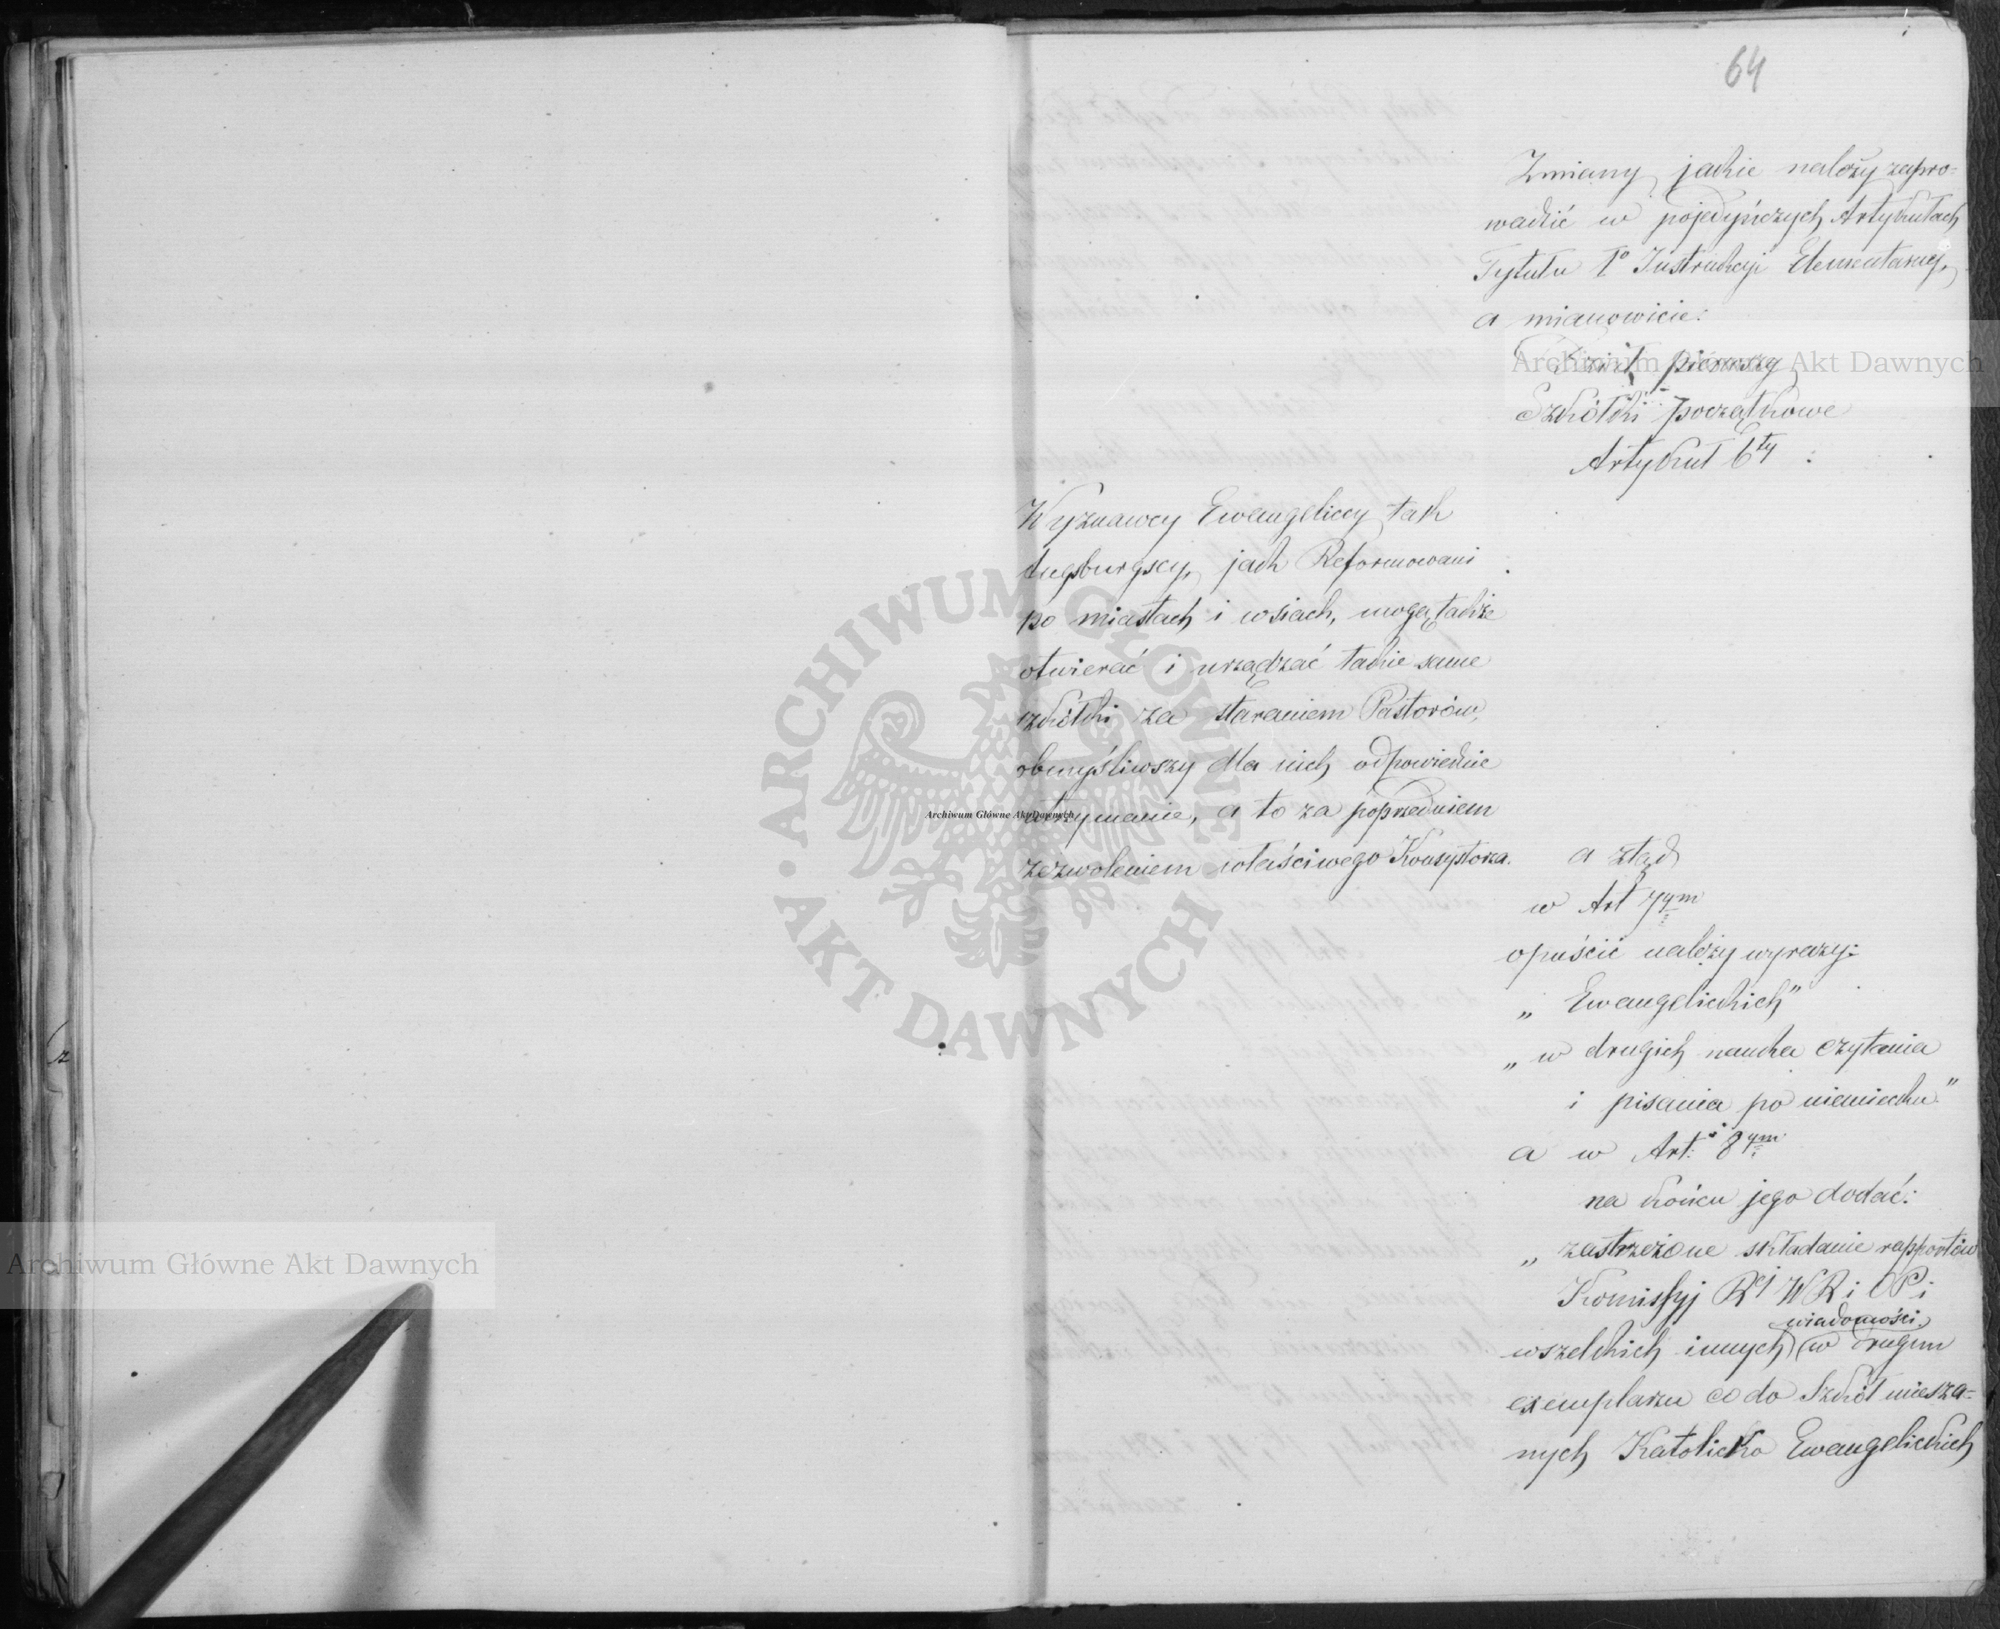 64
Zmiany jakie należy zapro=
wadzić w pojedyńczych Artykułach
Tytułu 1º Instrukcyi Elementarnej,
a mianowicie:
Dział pierwszy
Szkółki początkowe
Artykuł 6ty
Wyznawcy Ewangeliccy tak
Augsburgscy, jak Reformowani
po miastach i wsiach, mogą także
otwierać i urządzać takie same
szkółki za staraniem Pastorów,
obmyśliwszy dla nich odpowiednie
utrzymanie, a to za poprzedniem
zezwoleniem właściwego Konsystorza.
a ztąd
w Art 7ym
opuścić należy wyrazy:
„ Ewangelickich”
„ w drugich nauka czytania
i pisania po niemiecku”
a w Art: 8ym
na końcu jego dodać:
„ zastrzeżone składanie rapportów
Komissyj Rej WR i OP i
wszelkich innych wiadomości w drugim
exemplarzu co do Szkół miesza=
nych Katolicko Ewangelickich
Archiwum Główne Akt Dawnych
Archiwum Główne Akt Dawnych
Archiwum Główne Akt Dawnych
ARCHIWUM GŁÓWNE · AKT DAWNYCH ·